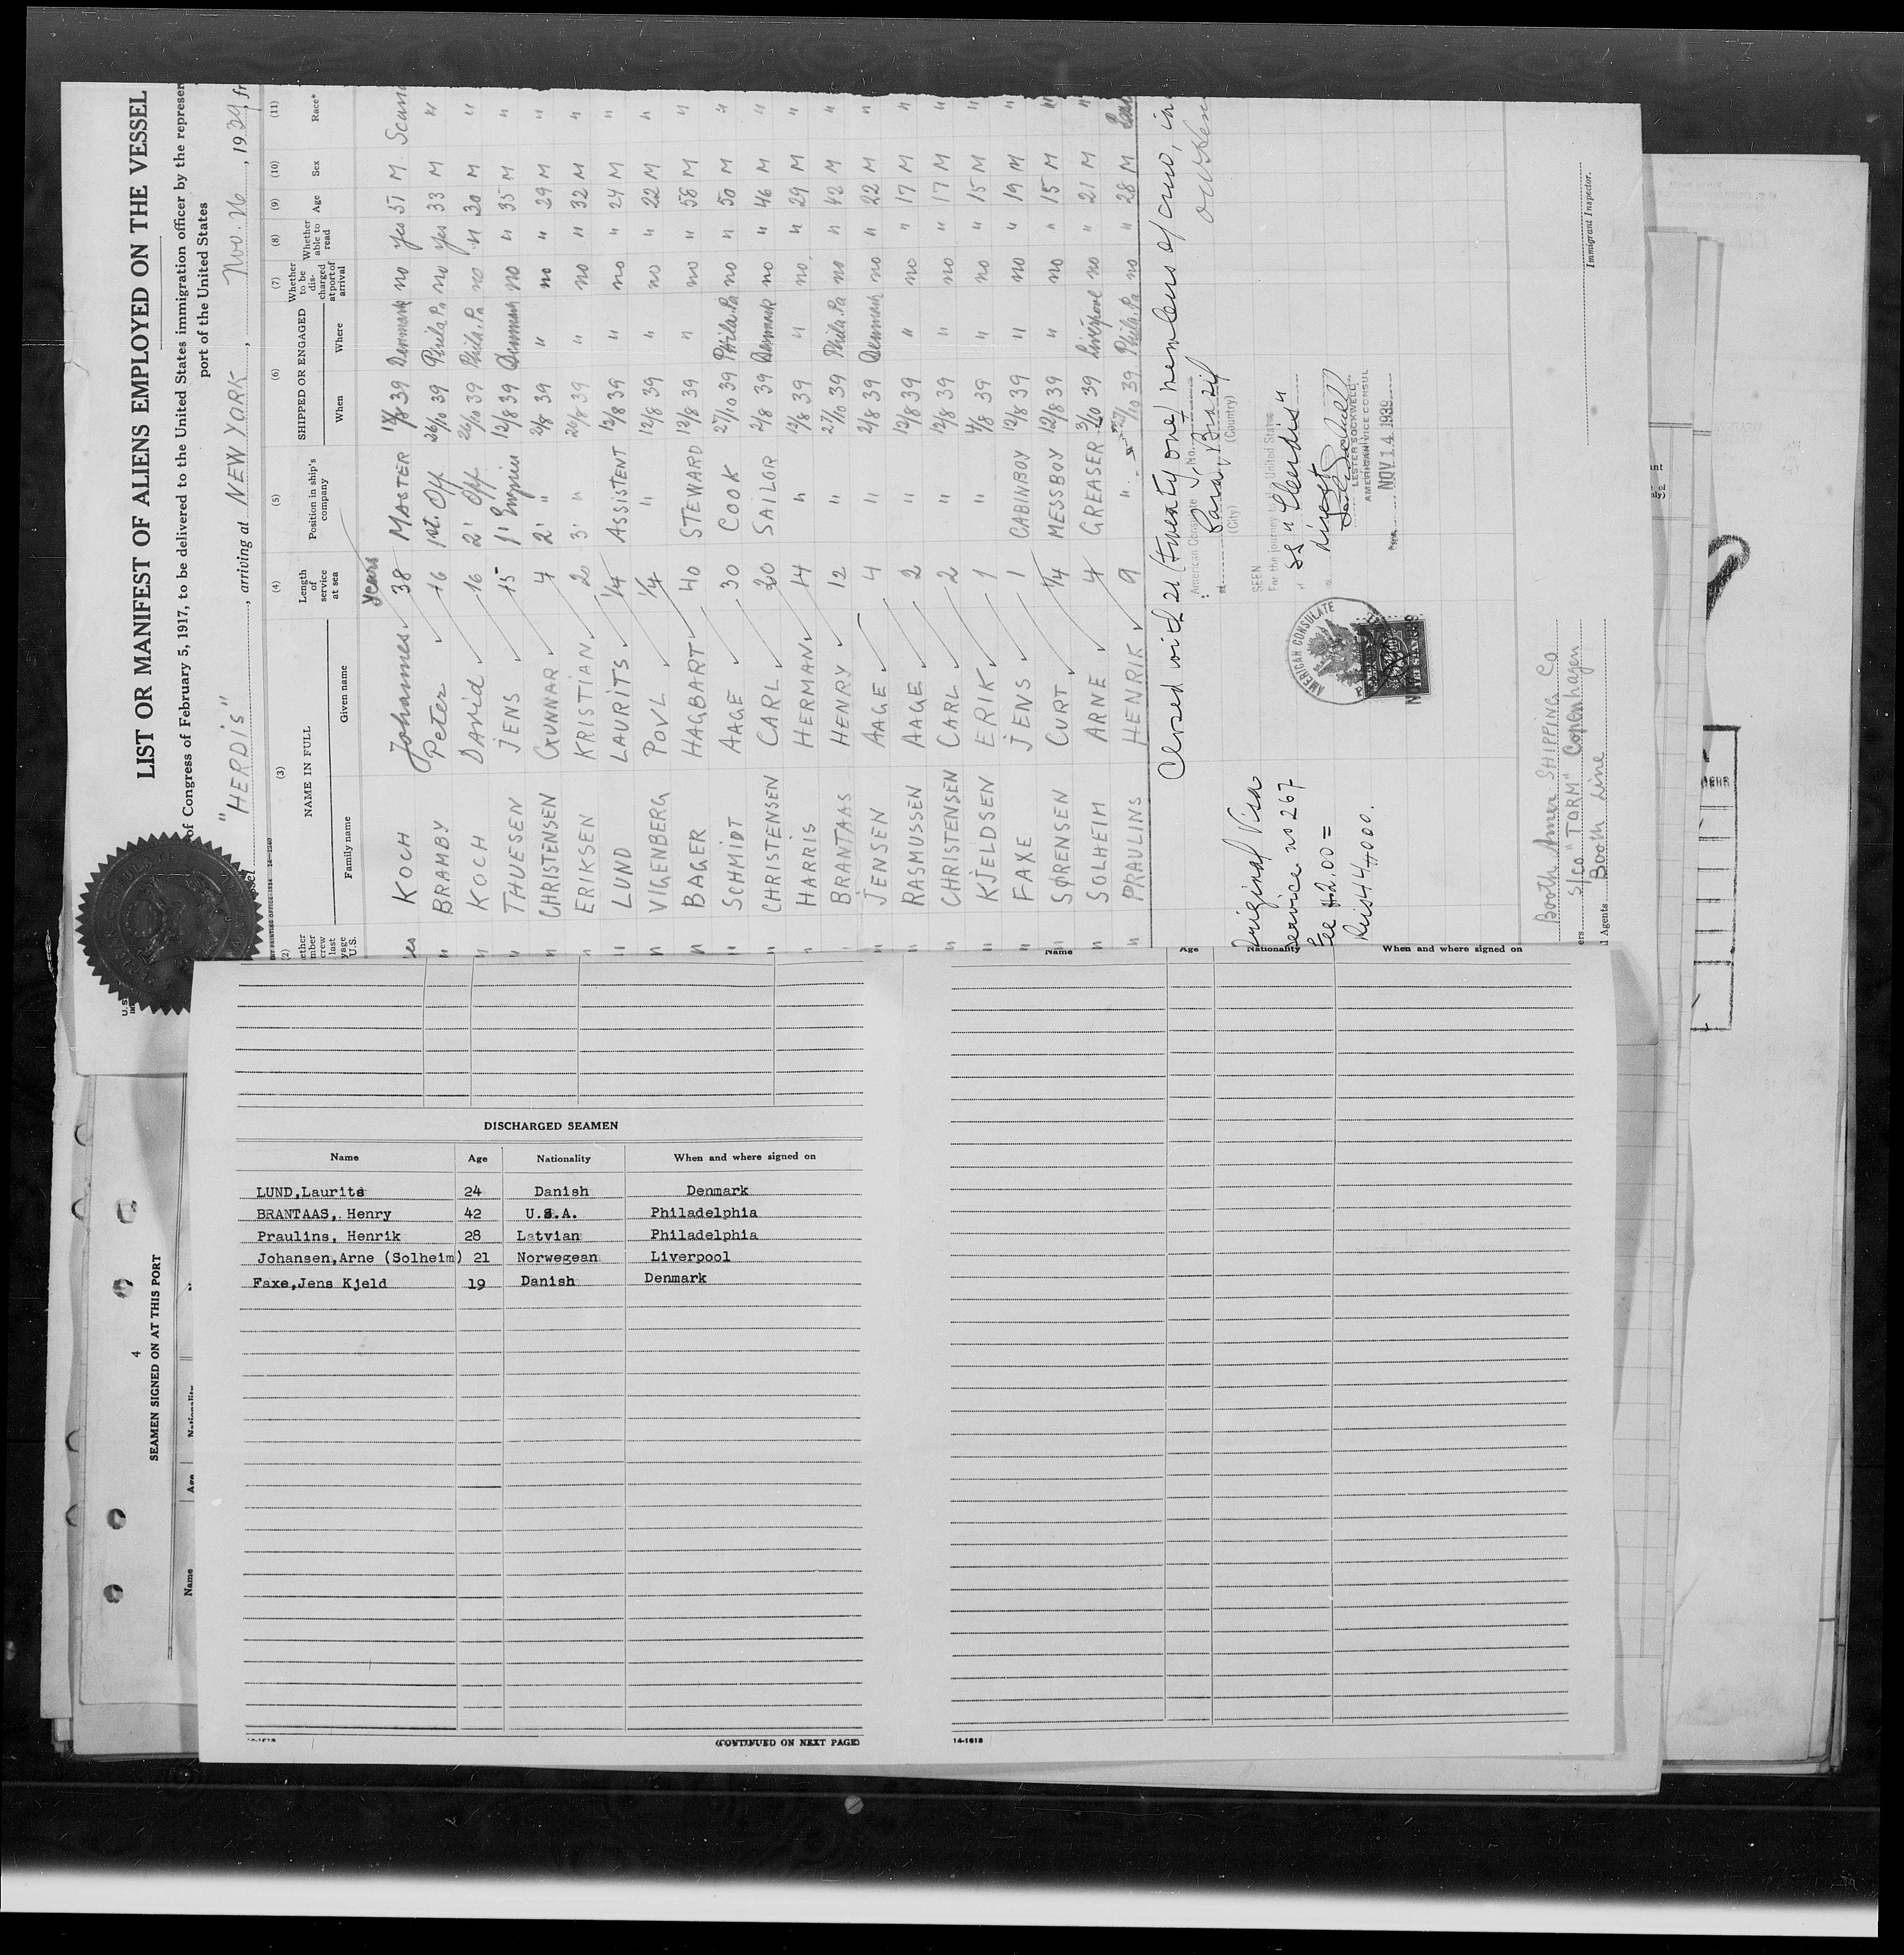 LIST OR MANIFEST OF ALIENS EMPLOYED ON THE VESSEL
of Congress of February 5, 1917, to be delivered to the United States immigration officer by the represen
port of the United States
"HERDIS", arriving at NEW YORK, Nov. 26, 1939, fr
(2) (3) (4) (5) (6) (7) (8) (9) (10) (11)
NAME IN FULL
Family name Given name
Length of service at sea
Position in ship's company
SHIPPED OR ENGAGED
When Where
Whether to be discharged at port of arrival
Whether able to read
Age Sex Race*
years
KOCH Johannes 38 MASTER 18/8 39 Denmark no yes 51 M Scan
" BRAMBY Peter 16 1st. Off 26/10 39 Phila. Pa no yes 33 M "
" KOCH David 16 2' Off 26/10 39 Phila. Pa no " 30 M "
" THUESEN JENS 15 1' Engineer 12/8 39 Denmark no " 35 M "
" CHRISTENSEN GUNNAR 4 2' " 2/8 39 " no " 29 M "
" ERIKSEN KRISTIAN 2 3' " 26/8 39 " no " 32 M "
" LUND LAURITS 1/4 ASSISTENT 12/8 39 " no " 24 M "
" VIGENBERG POVL 1/4 " 12/8 39 " no " 22 M "
" BAGER HAGBART 40 STEWARD 12/8 39 " no " 58 M "
" SCHMIDT AAGE 30 COOK 27/10 39 Phila. Pa no " 50 M "
" CHRISTENSEN CARL 30 SAILOR 2/8 39 Denmark no " 46 M "
" HARRIS HERMAN 14 " 12/8 39 " no " 29 M "
" BRANTAAS HENRY 12 " 27/10 39 Phila. Pa no " 42 M "
" JENSEN AAGE 4 " 2/8 39 Denmark no " 22 M "
" RASMUSSEN AAGE 2 " 12/8 39 " no " 17 M "
" CHRISTENSEN CARL 2 " 12/8 39 " no " 17 M "
" KJELDSEN ERIK 1 " 4/8 39 " no " 15 M "
" FAXE JENS 1 CABINBOY 12/8 39 " no " 19 M "
" SØRENSEN CURT 1/4 MESSBOY 12/8 39 " no " 15 M "
" SOLHEIM ARNE 4 GREASER 3/10 39 Liverpool no " 21 M "
" PRAULINS HENRIK 9 " 27/10 39 Phila. Pa no " 28 M
Closed with 21 (twenty one) members of crew, in
American Consulate No.
at Para, Brazil
(City) (Country)
SEEN
For the journey to the United States
SS "Herdis"
direct
LESTER SOCKWELL
AMERICAN VICE CONSUL
NOV 14 1939
AMERICAN CONSULATE
Original Visa
Service no 267
Fee $2.00 =
Booth Amer SHIPPING Co
S/Co "TORM" Copenhagen
Agents Booth Line
Immigrant Inspector.
4
SEAMEN SIGNED ON AT THIS PORT
Name Age Nationality
DISCHARGED SEAMEN
Name Age Nationality When and where signed on
LUND,Laurits 24 Danish Denmark
BRANTAAS, Henry 42 U.S.A. Philadelphia
Praulins, Henrik 28 Latvian Philadelphia
Johansen,Arne (Solheim) 21 Norwegean Liverpool
Faxe,Jens Kjeld 19 Danish Denmark
(CONTINUED ON NEXT PAGE)
Name Age Nationality When and where signed on
14-1618